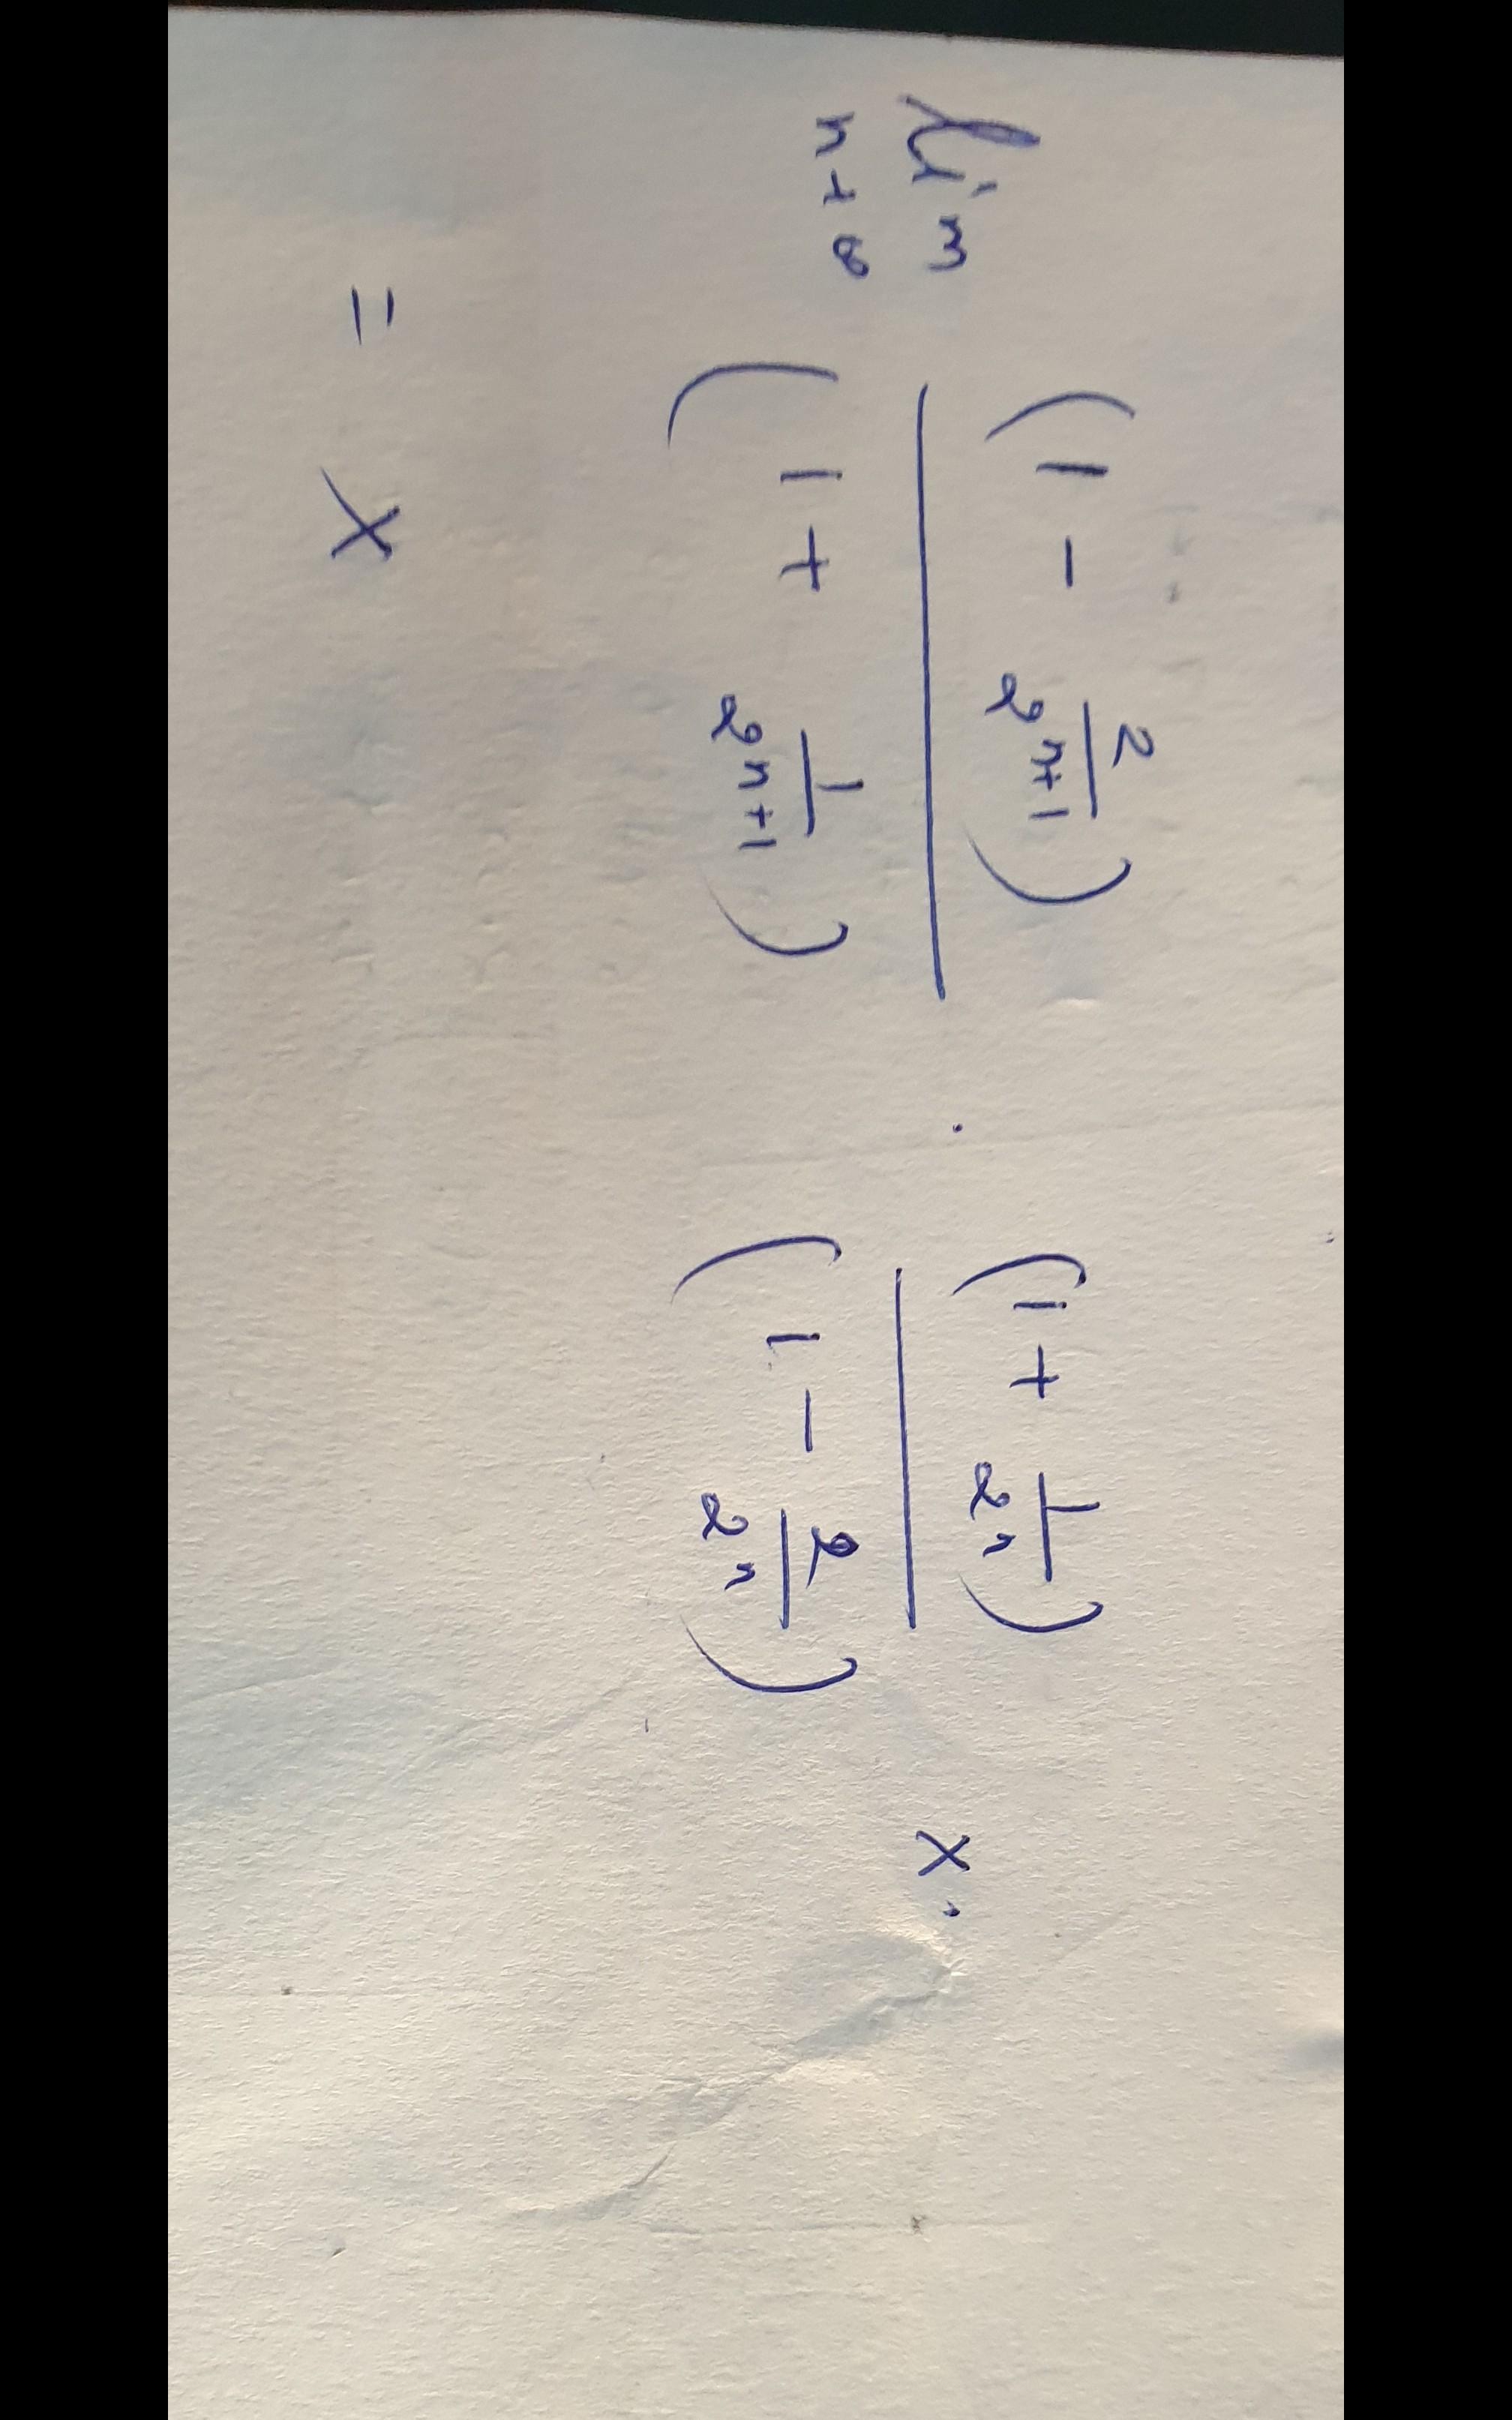 lim n→∞ (1 - 2/2^{n+1}) / (1 + 1/2^{n+1}) · (1 + 1/2^n) / (1 - 2/2^n) x.
= x